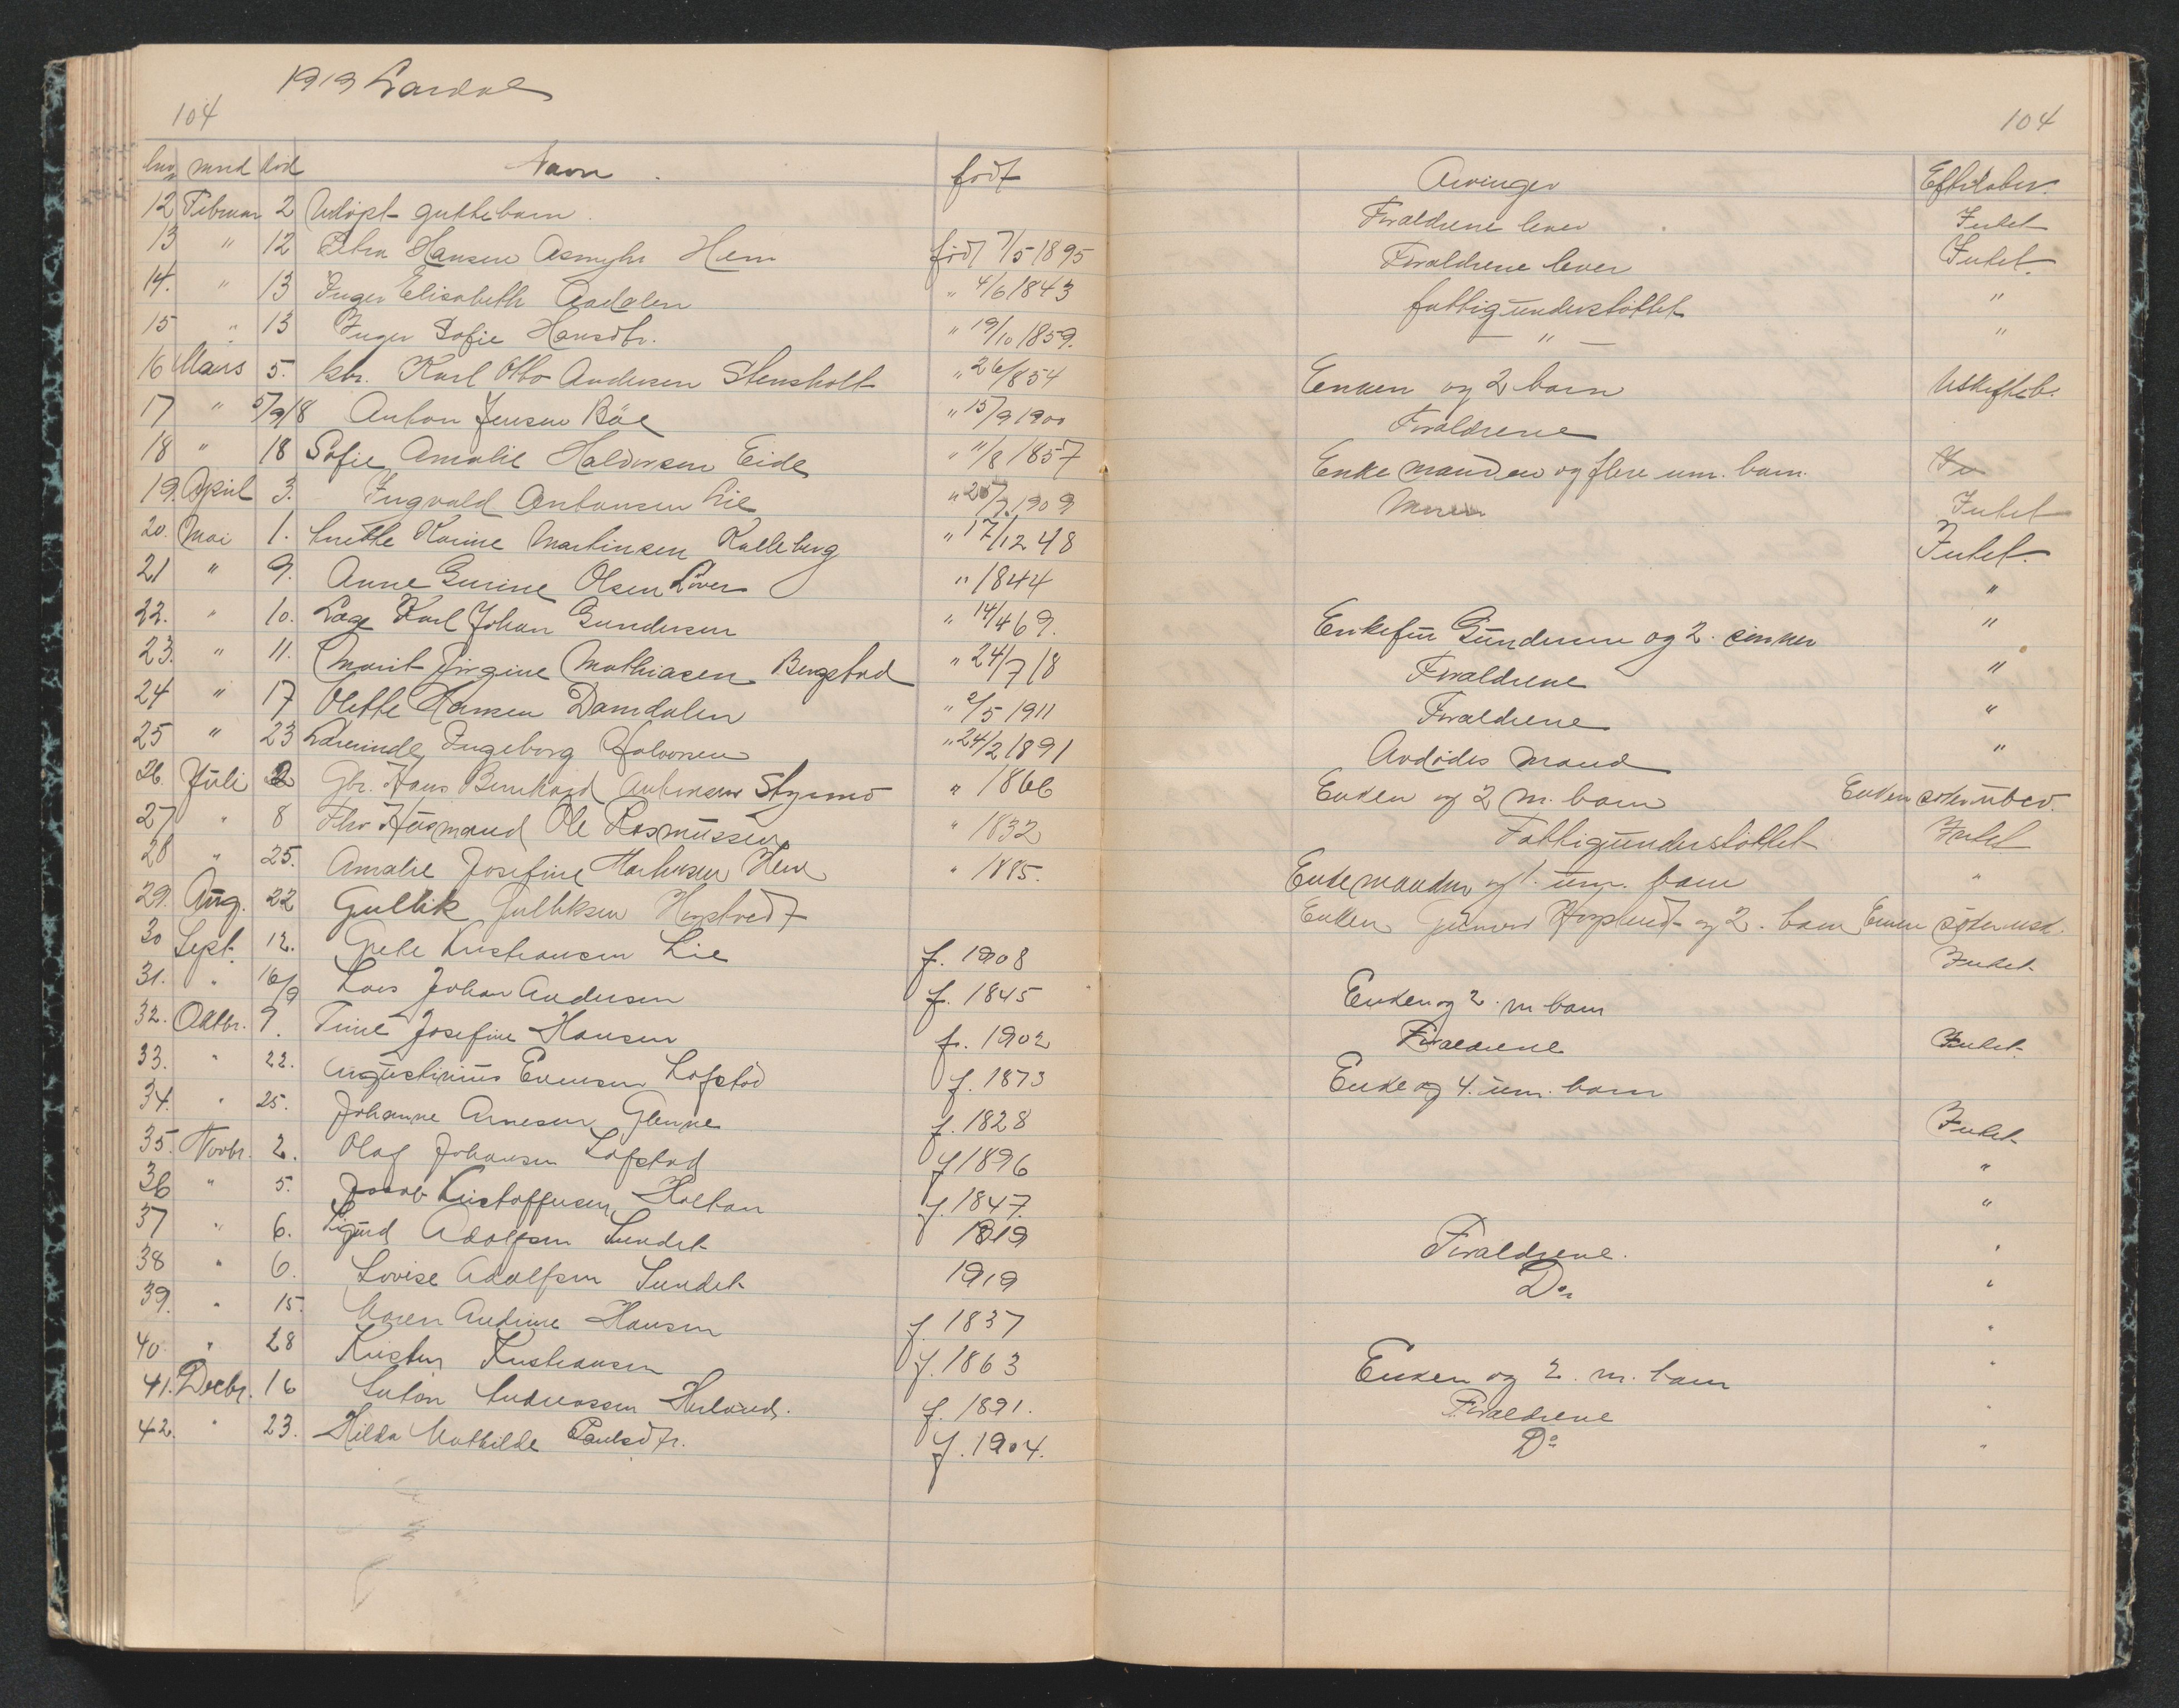 1919 Lardal
104
104
lnr mnd död Navn födt Arvinger Efterlater
12 Februar 2 Udöpt guttebarn Foraldrene lever Intet
13 " 12 Petra Hansen Asmyhr Hem född 7/5 1895 Foraldrene lever Intet
14. " 13 Inger Elisabeth Aadalen " 4/6 1843 fattigunderstöttet "
15 " 13 Inger Sofie Hansdtr. " 19/10 1859. — " — "
16 Mars 5. Karl Otto Andersen Stensholt " 26/854 Enken og 2 barn Uskifteb.
17 " 5/9/18 Anton Jensen Böe " 15/9 1900 Foraldrene
18 " 18 Sofie Amalie Halvorsen Eide " 11/8 1857 Enkemanden og flere um. barn
19. April 3. Ingvald Antonsen Lie 1909 Moren Intet
20. Mai 1. Karine Martinsen Kalleberg " 17/12 48 Intet.
21 " 9. Anne Gurine Olsen Löver " 1844 "
22. " 10. Lage Karl Johan Gundersen " 14/4 69. Enkefru Gundersen og 2. sönner "
23. " 11. Marit Jörgine Mathiasen Bergstad " 24/7 18 Foraldrene "
24 " 17 Olette Hansen Damdalen " 2/5 1911 Foraldrene "
25 " 23 Lærerinde Ingeborg Halvorsen " 24/2 1891 Avdödes mand "
26. Juli 2 Gbr. Hans Bernhard Antonsen Styrmo " 1866 Enken og 2 m. barn Enken
27 " 8 Fhv Husmand Ole Rasmussen " 1832 Fattigunderstöttet Intet
28 " 25. Amalie Josefine Martinsen Hem " 1885. Enkemanden og 1. um. barn "
29. Aug. 22 Gullik Gulliksen Hogstvedt Enken Gunvor og 2. barn Enken
30 Sept. 12. Grete Kristiansen Lie f. 1908 Intet
31. " 16/9 Lars Johan Andersen f. 1845 Enken og 2. m barn
32. Oktbr. 9. Trine Josefine Hansen f. 1902 Foraldrene Intet.
33. " 22. Augustinius Evensen Lofstad f. 1873 Enke og 4. um. barn
34. " 25. Johanne Arnesen Glenne f. 1828 Intet
35. Novbr. 2. Olaf Johansen Lofstad f 1896 "
36 " 5. Jacob Kristoffersen Holtan f. 1847. "
37 " 6. Sigurd Adolfsen Sundet 1919 Foraldrene. "
38 " 6. Lovise Adolfsen Sundet 1919 Do. "
39. " 15. Maren Andrine Hansen f. 1837 "
40 " 28 Kristen Kristiansen f. 1863 Enken og 2. m. barn "
41. Decbr. 16 Anton Andreassen f. 1891. Foraldrene "
42. " 23. Hilda Mathilde Paulsdtr. f. 1904. Do "